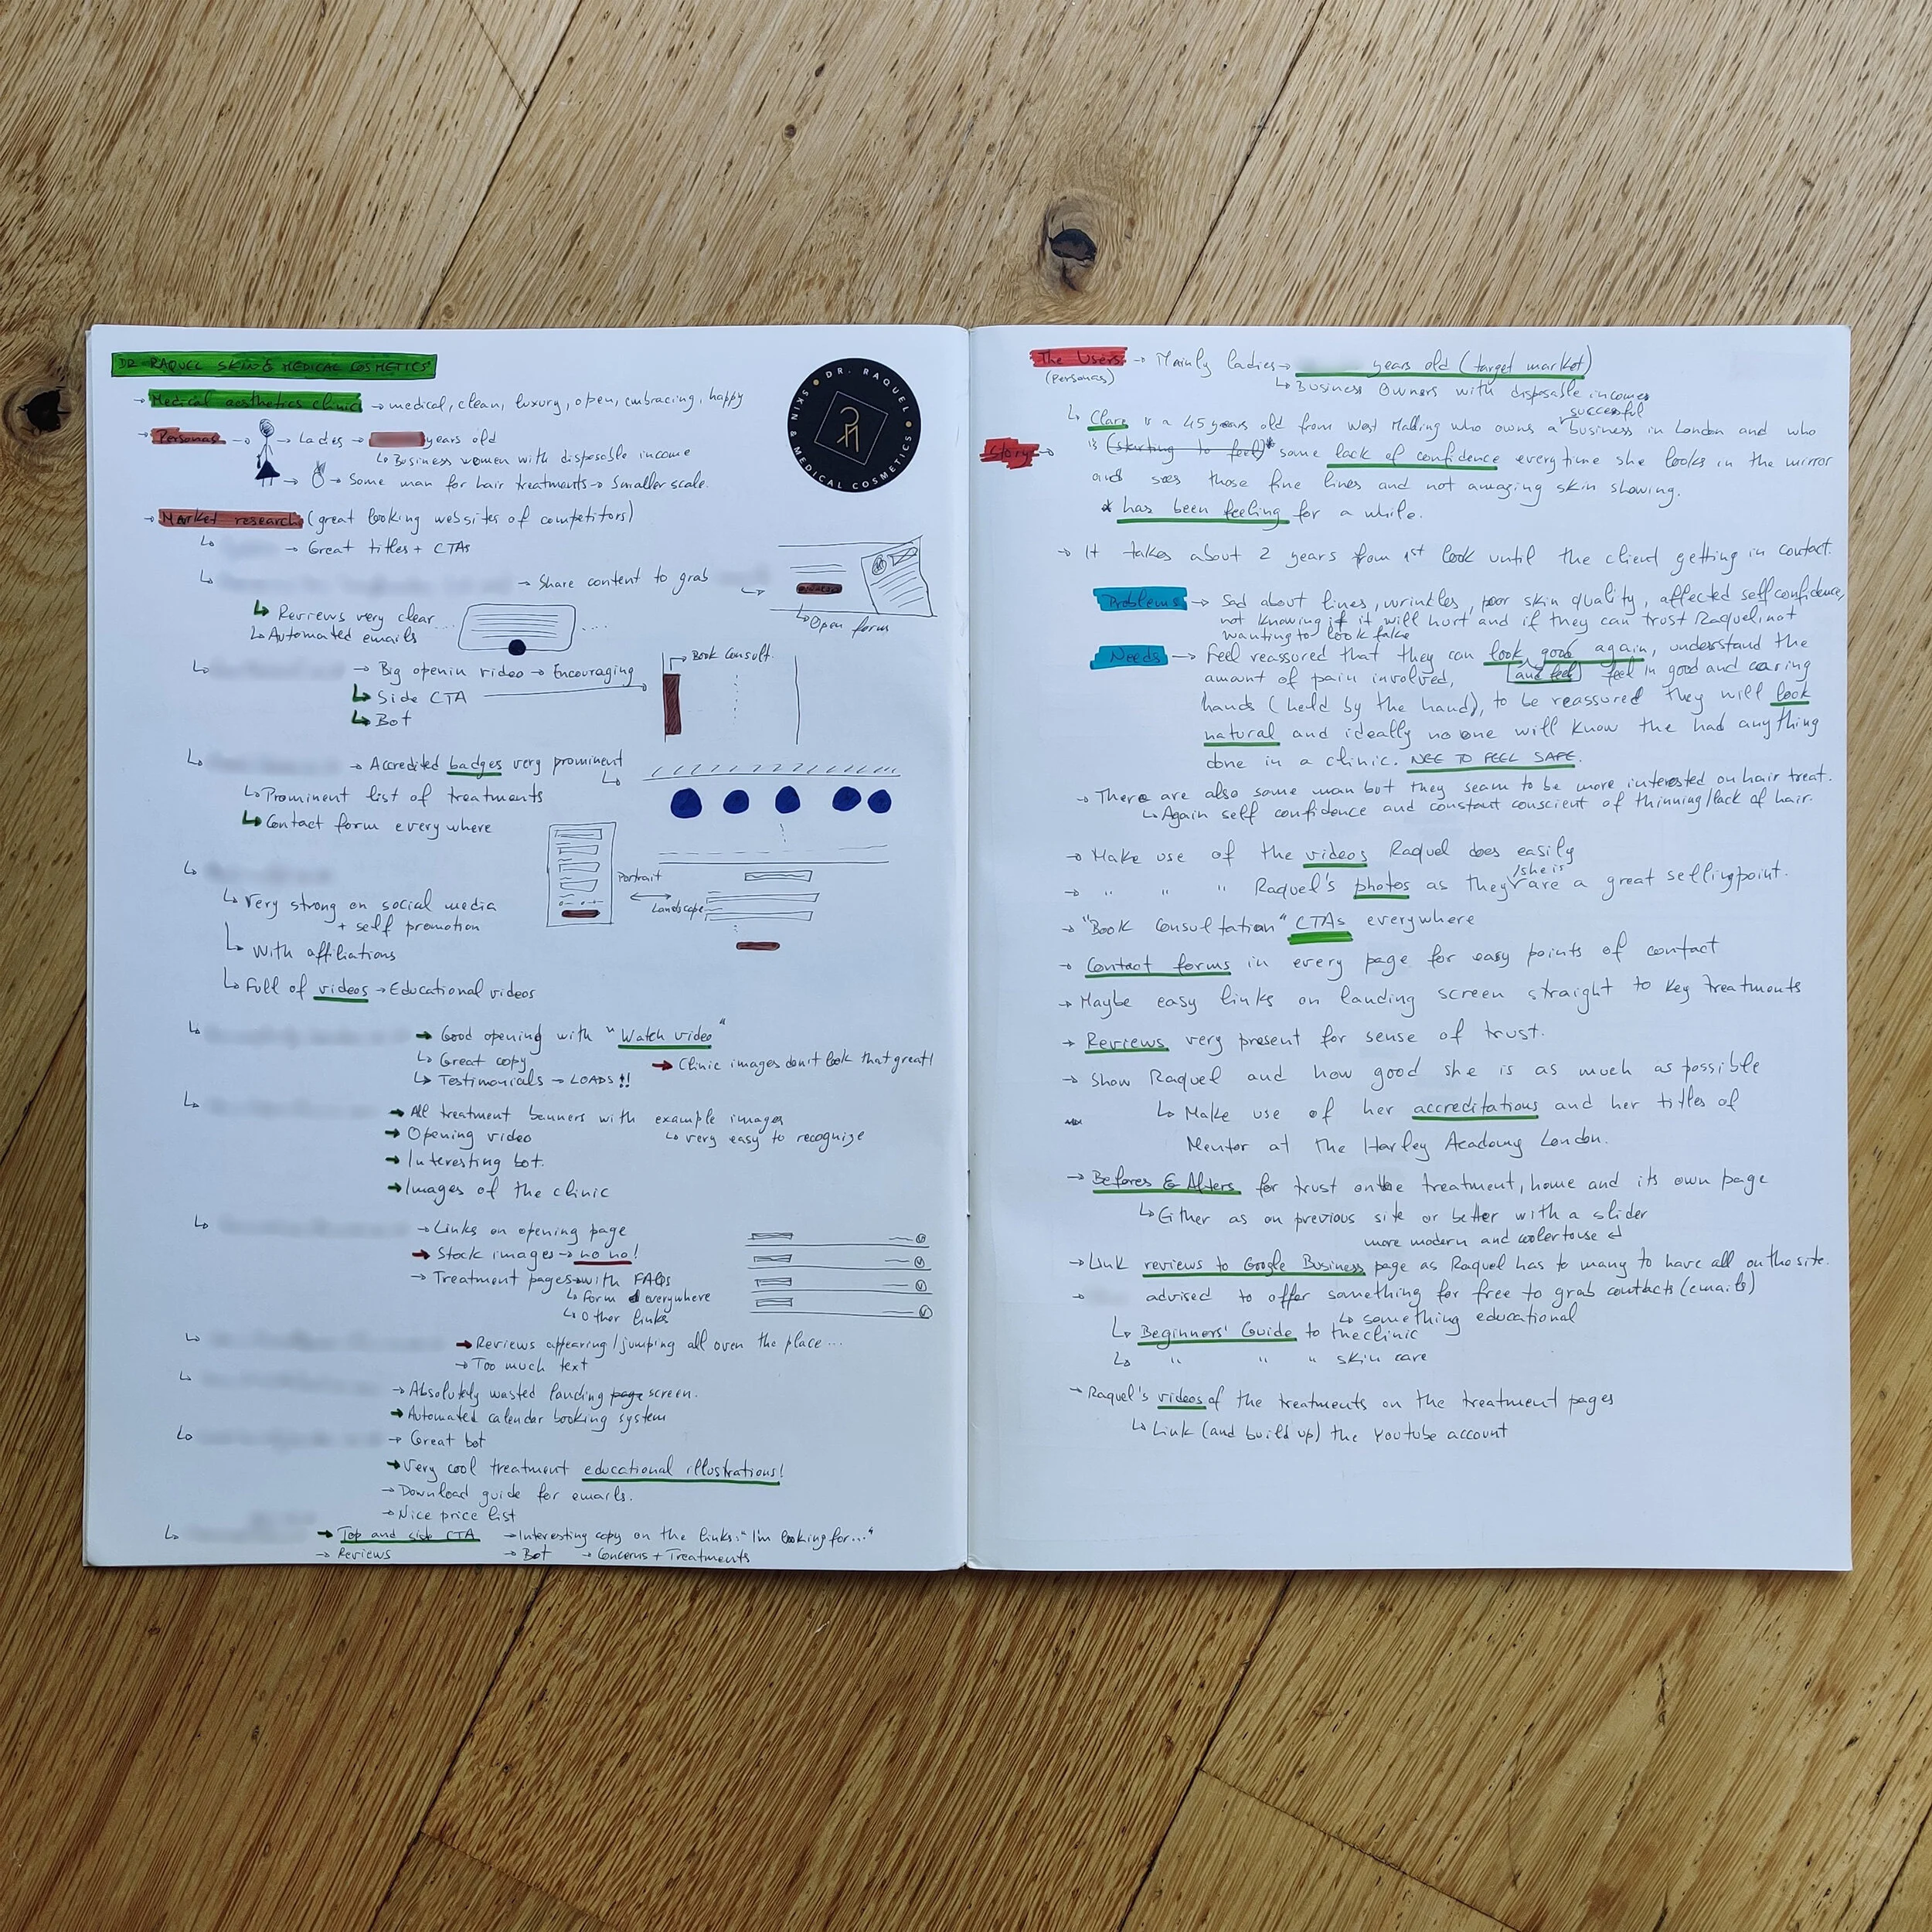 DR RAQUEL SKIN & MEDICAL COSMETICS
DR. RAQUEL
SKIN & MEDICAL COSMETICS
→ Medical aesthetics clinic → medical, clean, luxury, open, embracing, happy
→ Personas → → Ladies → years old
↳ Business women with disposable income
→ → Some man for hair treatments → Smaller scale.
→ Market research (great looking websites of competitors)
↳ → Great titles + CTAs
↳ → Share content to grab
↳ Open form
↳ Reviews very clear
↳ Automated emails
↳ → Big openin video → Encouraging
↳ Side CTA
↳ Bot
Book Consult.
↳ → Accredited badges very prominent
↳ Prominent list of treatments
↳ Contact form everywhere
Portrait
Landscape
↳ Very strong on social media
+ self promotion
↳ With affiliations
↳ Full of videos → Educational videos
↳ → Good opening with "Watch video"
↳ Great copy → Clinic images don't look that great!
↳ Testimonials → LOADS!!
↳ → All treatment banners with example images
→ Opening video ↳ very easy to recognize
→ Interesting bot.
→ Images of the clinic
↳ → Links on opening page
→ Stock images → no no!
→ Treatment pages → with FAQs
↳ Form everywhere
↳ Other links
↳ → Reviews appearing/jumping all over the place...
→ Too much text
↳ → Absolutely wasted landing page screen.
→ Automated calendar booking system
↳ → Great bot
→ Very cool treatment educational illustrations!
→ Download guide for emails.
→ Nice price list
↳ → Top and side CTA → Interesting copy on the links: "I'm looking for..."
→ Reviews → Bot → Concerns + Treatments
The Users → Mainly ladies → years old (target market)
(personas) ↳ Business Owners with disposable incomes
successful
↳ Clare is a 45 years old from West Malling who owns a business in London and who
Story → is (starting to feel)* some lack of confidence everytime she looks in the mirror
and sees those fine lines and not amazing skin showing.
* has been feeling for a while.
→ It takes about 2 years from 1st look until the client getting in contact.
Problems → Sad about lines, wrinkles, poor skin quality, affected self confidence,
not knowing if it will hurt and if they can trust Raquel, not
wanting to look fake
Needs → Feel reassured that they can look good again, understand the
amount of pain involved, and feel feel in good and caring
hands (held by the hand), to be reassured they will look
natural and ideally no one will know the had anything
done in a clinic. NEE TO FEEL SAFE.
→ There are also some man but they seam to be more interested on hair treat.
↳ Again self confidence and constant conscient of thinning/lack of hair.
→ Make use of the videos Raquel does easily
→ " " " Raquel's photos as they/she is are a great sellingpoint.
→ "Book Consultation" CTAs everywhere
→ Contact forms in every page for easy points of contact
→ Maybe easy links on landing screen straight to key treatments
→ Reviews very present for sense of trust.
→ Show Raquel and how good she is as much as possible
↳ Make use of her accreditations and her titles of
Mentor at the Harley Academy London.
→ Befores & Afters for trust on the treatment, home and its own page
↳ Either as on previous site or better with a slider
more modern and cooler to use
→ Link reviews to Google Business page as Raquel has to many to have all on the site.
→ advised to offer something for free to grab contacts (emails)
↳ something educational
↳ Beginners' Guide to the clinic
↳ " " " skin care
→ Raquel's videos of the treatments on the treatment pages
↳ Link (and build up) the Youtube account